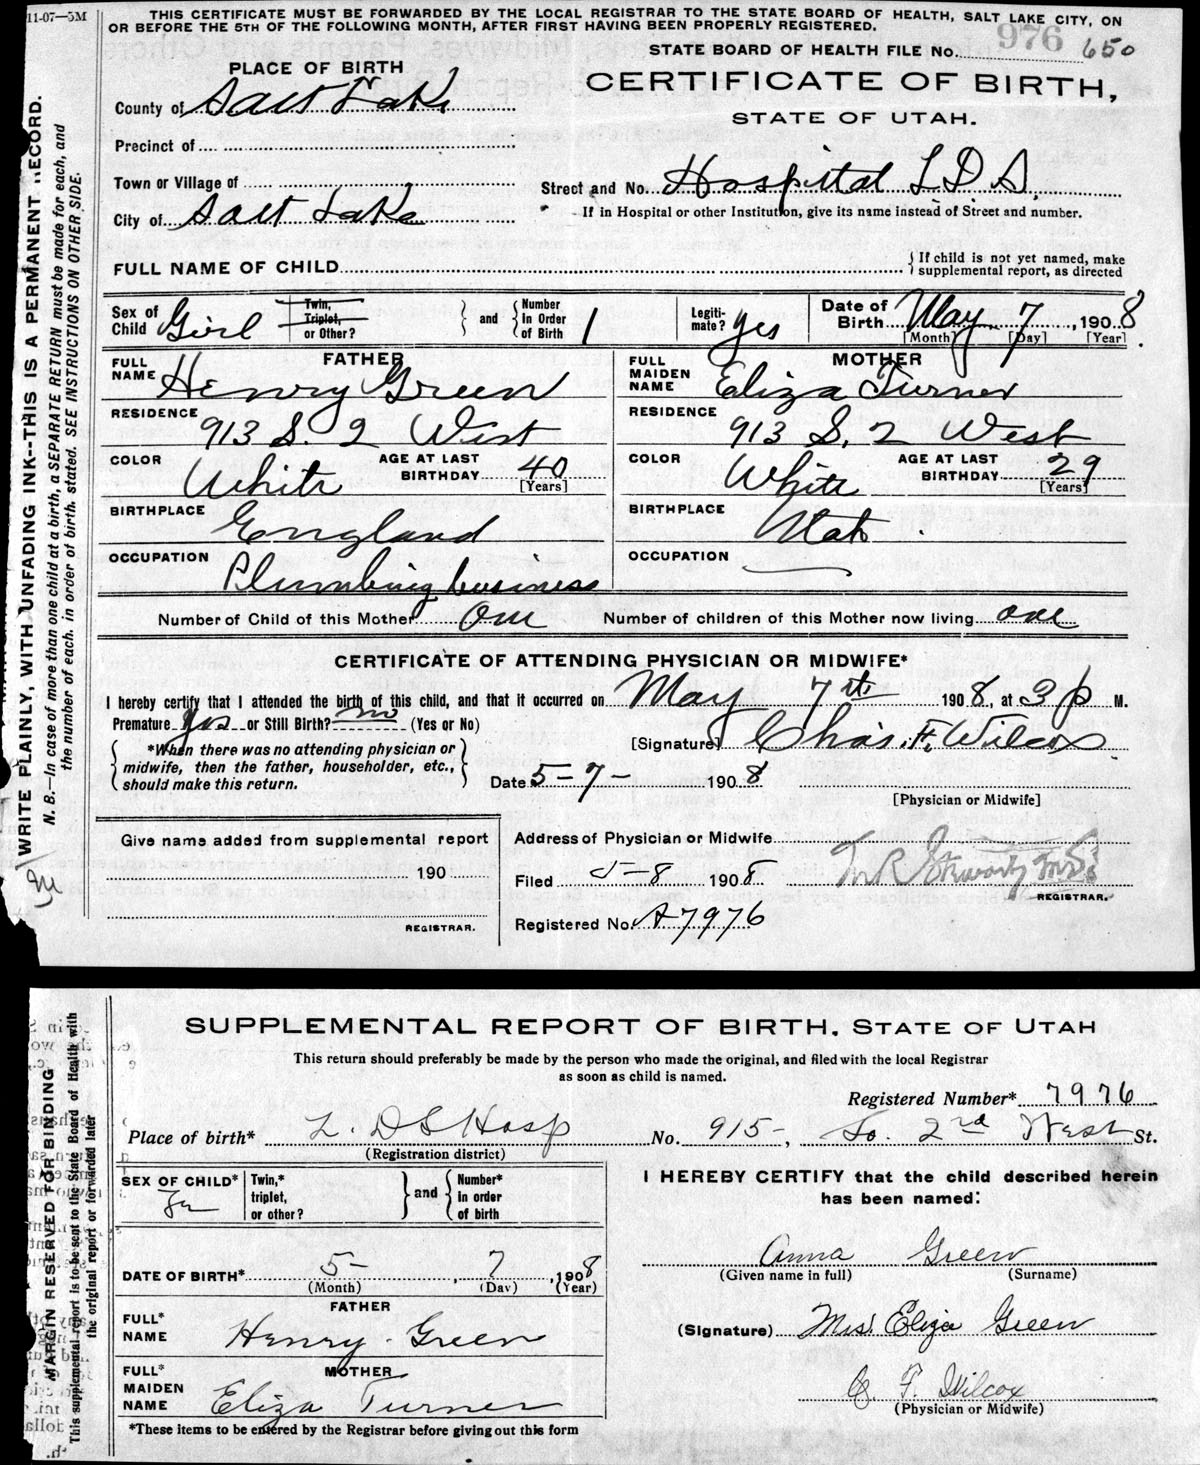 11-07—5M
THIS CERTIFICATE MUST BE FORWARDED BY THE LOCAL REGISTRAR TO THE STATE BOARD OF HEALTH, SALT LAKE CITY, ON
OR BEFORE THE 5TH OF THE FOLLOWING MONTH, AFTER FIRST HAVING BEEN PROPERLY REGISTERED.
STATE BOARD OF HEALTH FILE No. 976 650
PLACE OF BIRTH
CERTIFICATE OF BIRTH,
STATE OF UTAH.
County of Salt Lake
Precinct of
Town or Village of
Street and No. Hospital L D S.
City of Salt Lake
If in Hospital or other Institution, give its name instead of Street and number.
FULL NAME OF CHILD
{If child is not yet named, make
supplemental report, as directed
Sex of Child Girl
Twin, Triplet, or Other?
and
Number In Order of Birth 1
Legiti-mate? yes
Date of Birth May 7, 1908
[Month] [Day] [Year]
FATHER
FULL NAME Henry Green
MOTHER
FULL MAIDEN NAME Eliza Turner
RESIDENCE 913 S. 2 West
RESIDENCE 913 S. 2 West
COLOR White AGE AT LAST BIRTHDAY 40 [Years]
COLOR White AGE AT LAST BIRTHDAY 29 [Years]
BIRTHPLACE England
BIRTHPLACE Utah
OCCUPATION Plumbing business
OCCUPATION
Number of Child of this Mother One Number of children of this Mother now living one
CERTIFICATE OF ATTENDING PHYSICIAN OR MIDWIFE*
I hereby certify that I attended the birth of this child, and that it occurred on May 7th 1908, at 3 p M.
Premature yes or Still Birth? no (Yes or No)
*When there was no attending physician or
midwife, then the father, householder, etc.,
should make this return.
[Signature] Chas. F. Wilcox
Date 5-7- 1908
[Physician or Midwife]
Give name added from supplemental report
190
REGISTRAR.
Address of Physician or Midwife
Filed 5-8 1908 REGISTRAR.
Registered No. A7976
WRITE PLAINLY, WITH UNFADING INK--THIS IS A PERMANENT RECORD.
N. B.—In case of more than one child at a birth, a SEPARATE RETURN must be made for each, and
the number of each. in order of birth. stated. SEE INSTRUCTIONS ON OTHER SIDE.
SUPPLEMENTAL REPORT OF BIRTH, STATE OF UTAH
This return should preferably be made by the person who made the original, and filed with the local Registrar
as soon as child is named.
Registered Number* 7976
Place of birth* L. D S Hosp No. 915-, So. 2nd West St.
(Registration district)
SEX OF CHILD* Fe
Twin,* triplet, or other?
and
Number* in order of birth
I HEREBY CERTIFY that the child described herein
has been named:
DATE OF BIRTH* 5- , 7 , 1908
(Month) (Day) (Year)
Anna Green
(Given name in full) (Surname)
FATHER
FULL* NAME Henry Green
(Signature) Mrs. Eliza Green
MOTHER
FULL* MAIDEN NAME Eliza Turner
C. F. Wilcox
(Physician or Midwife)
*These items to be entered by the Registrar before giving out this form
MARGIN RESERVED FOR BINDING
This supplemental report is to be sent to the State Board of Health with
the original report or forwarded later